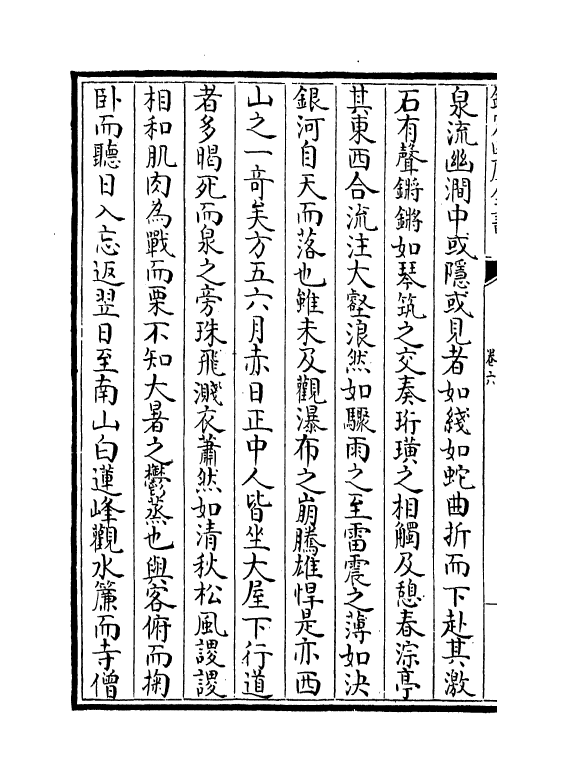 泉流幽澗中或隱或見者如綫如蛇曲折而下赴其激
石有聲鏘鏘如琴筑之交奏珩璜之相觸及憩春淙亭
其東西合流注大壑浪然如驟雨之至雷震之薄如決
銀河自天而落也雖未及觀瀑布之崩騰雄悍是亦西
山之一竒矣方五六月赤日正中人皆坐大屋下行道
者多暍死而泉之旁珠飛濺衣蕭然如清秋松風謖謖
相和肌肉為戰而栗不知大暑之鬱蒸也與客俯而掬
卧而聽日入忘返翌日至南山白蓮峰觀水簾而寺僧
卷六